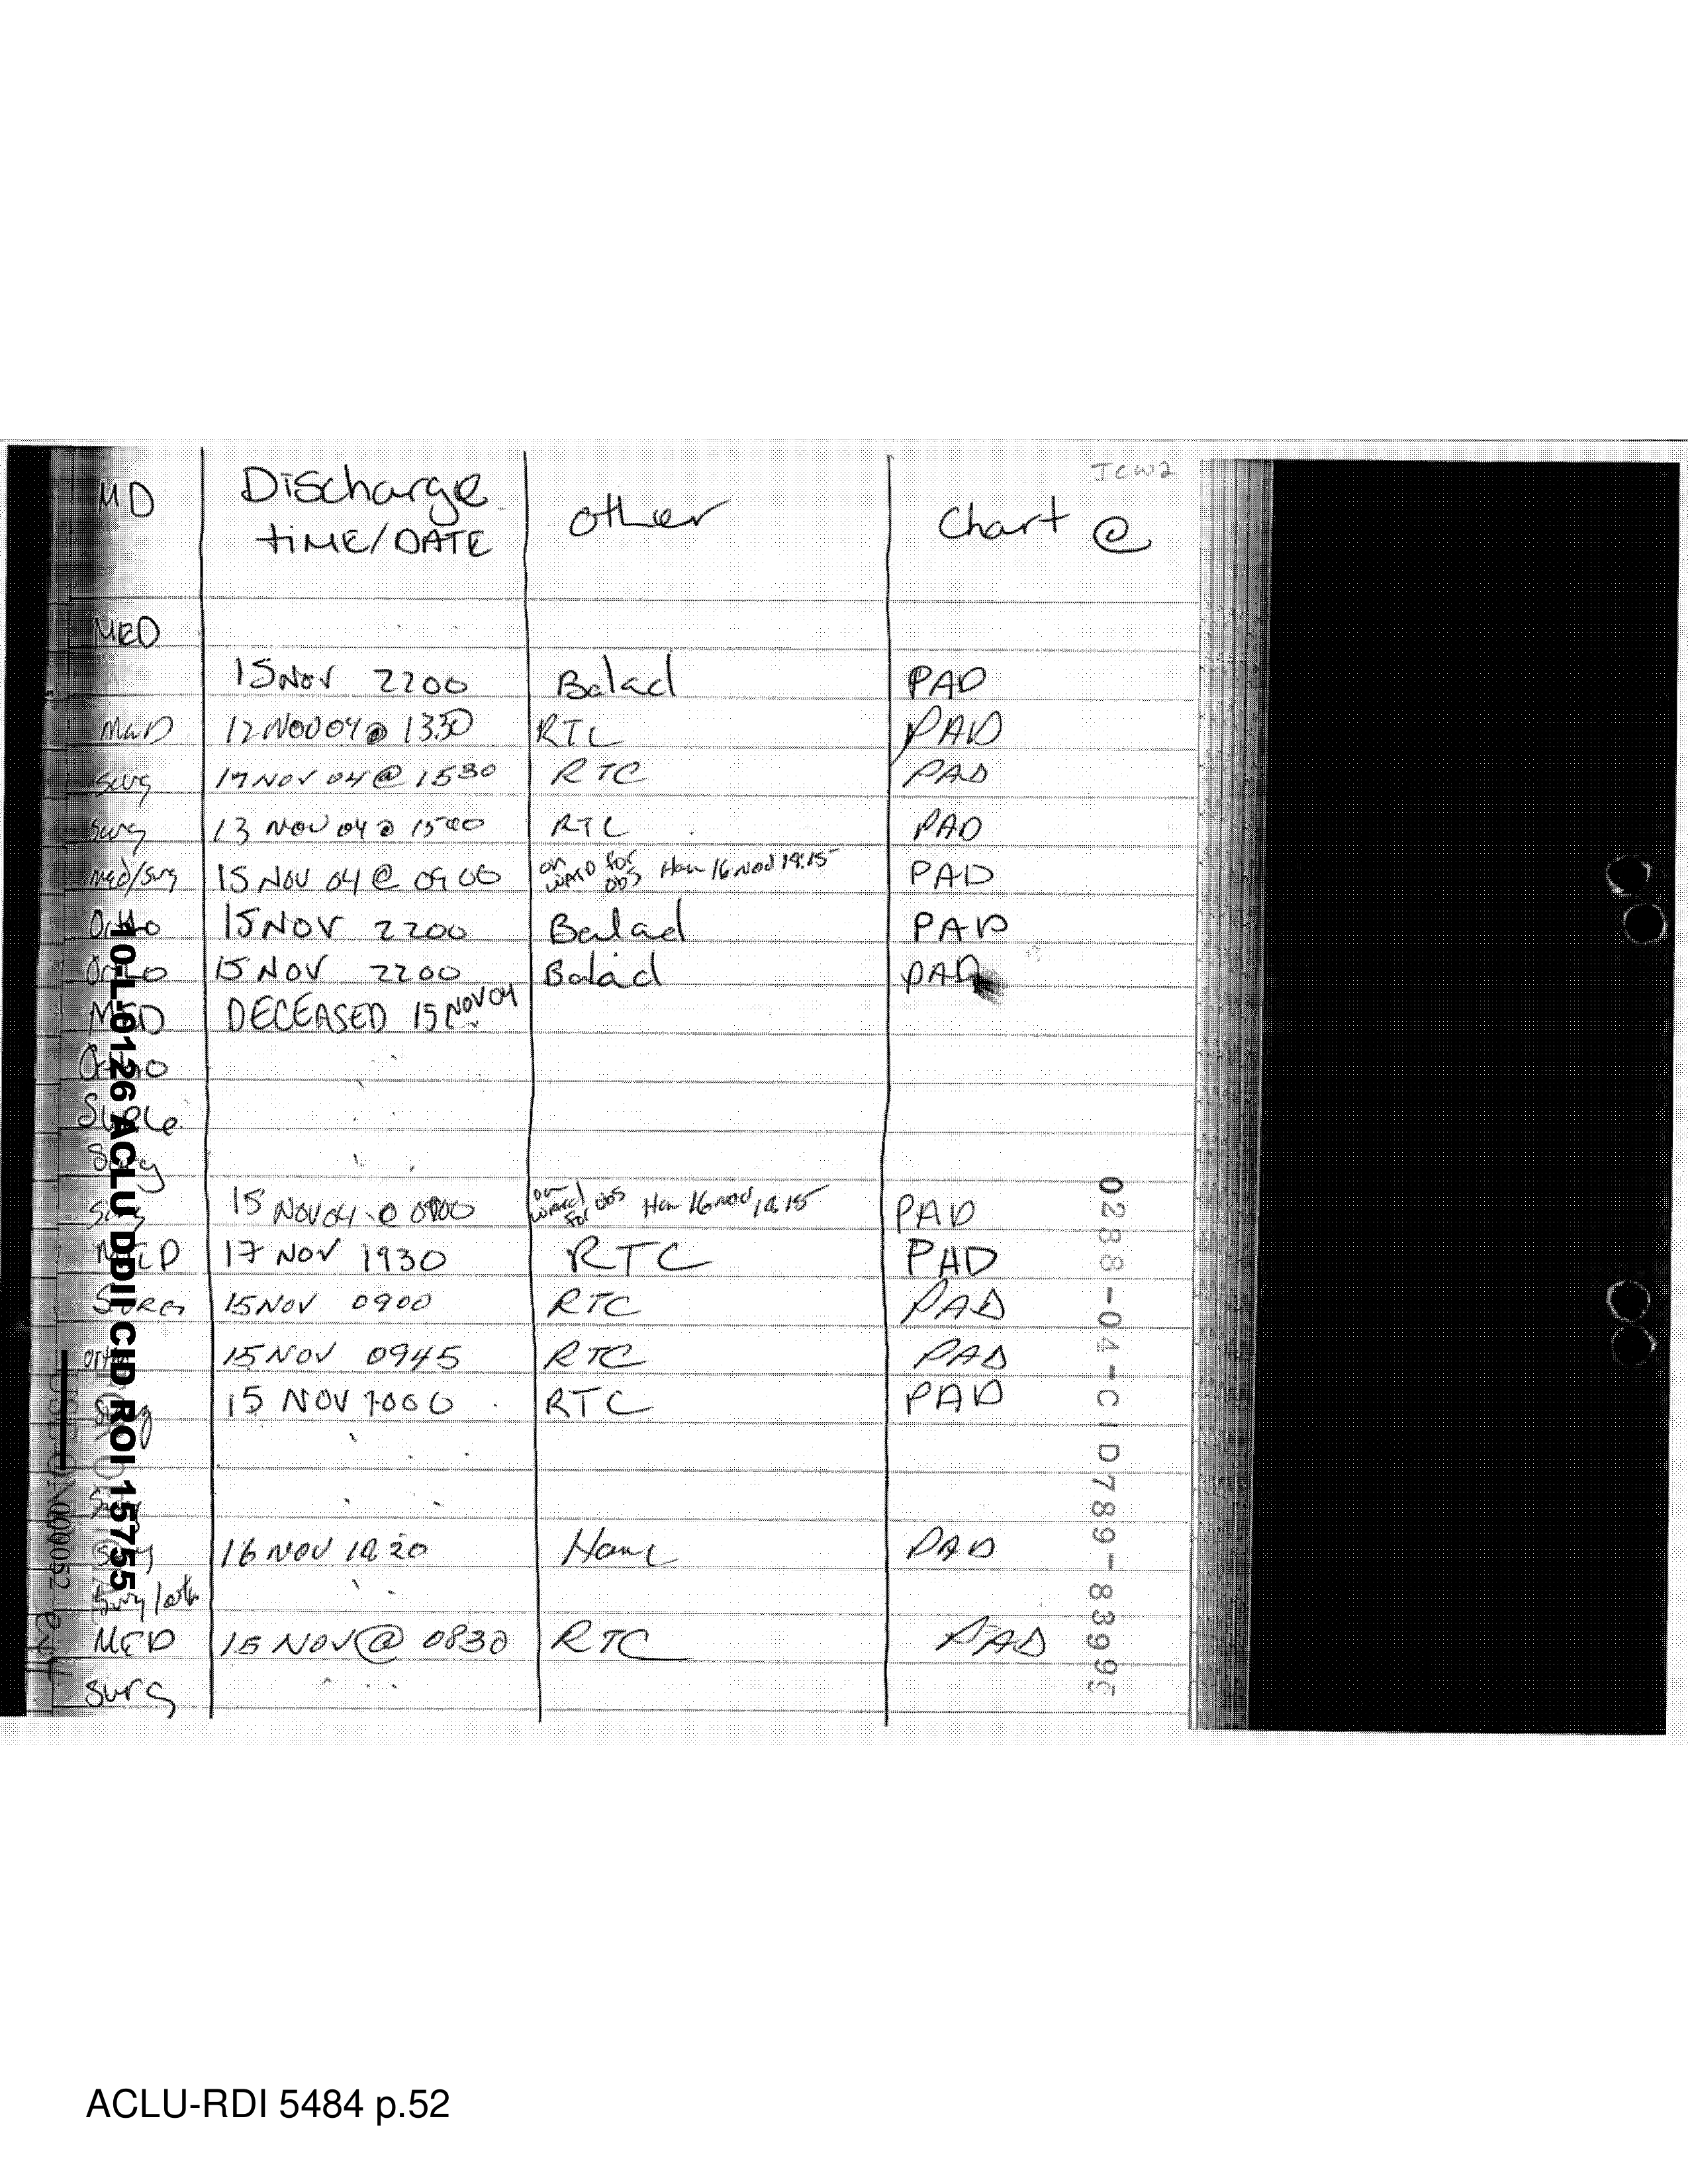 ICW2
MD Discharge TIME/DATE other Chart @
MED
15 NOV 2200 Balad PAD
MED 12 NOV 04 @ 1330 RTC PAD
Surg 17 NOV 04 @ 1530 RTC PAD
Surg 13 NOV 04 @ 1500 RTC PAD
med/surg 15 NOV 04 @ 0900 on WARD for obs 16 Nov PAD
Ortho 15 NOV 2200 Balad PAD
Ortho 15 NOV 2200 Balad PAD
MED DECEASED 15 NOV 04
Ortho
Surg
Surg 15 NOV 04 @ on ward for obs 16 Nov PAD
MED 17 NOV 1930 RTC PAD
SURG 15 NOV 0900 RTC PAD
ortho 15 NOV 0945 RTC PAD
Surg 15 NOV 1000 RTC PAD
Surg 16 NOV PAD
Surg/orth
MED 15 NOV @ 0830 RTC PAD
Surg
10-L-0126 ACLU DDII CID ROI 15755
000052
0288-04-CID789-8399
ACLU-RDI 5484 p.52